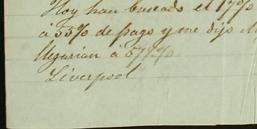 Hoy han buscado el 17%
á 55% de pago y me dijo
llegarian á 57½%
Liverpool